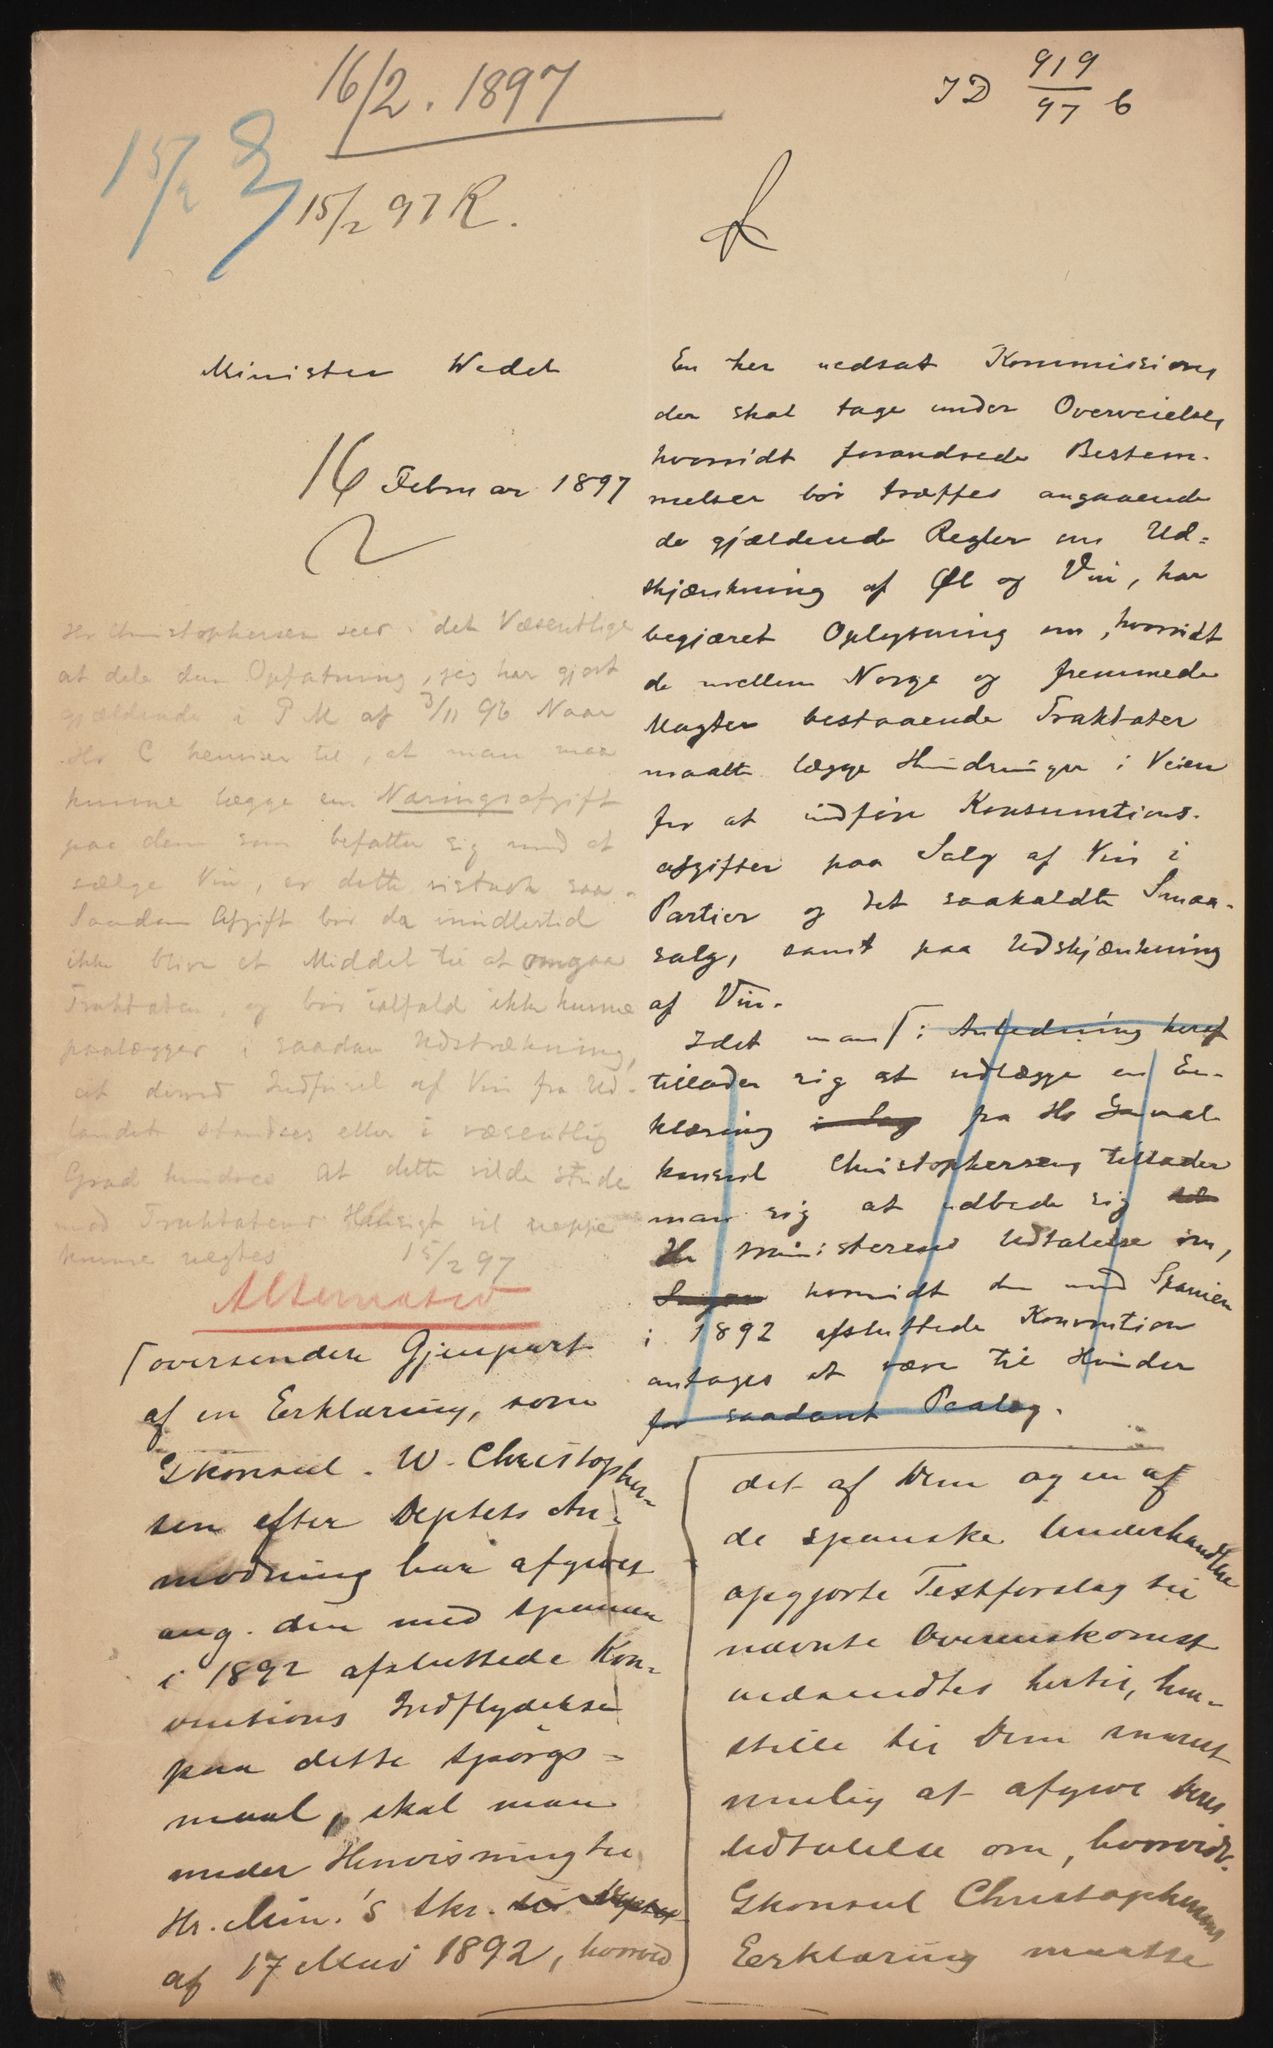 16/2. 1897
JD 919/97 b
15/2
15/2 97 R.
Minister Wedel
16 Februar 1897
En her nedsat Kommission,
der skal tage under Overveielse,
hvorvidt forandrede Bestem-
melser bør træffes angaaende
de gjældende Regler om Ud=
skjænkning af Øl og Vin, har
begjæret Oplysning om, hvorvidt
de mellem Norge og fremmede
Magter bestaaende Traktater
maatte lægge Hindringer i Veien
for at indføre Konsumtions-
afgifter paa Salg af Vin i
Partier og det saakaldte Smaa-
salg, samt paa Udskjænkning
af Vin.
Idet man ⌈ i Anledning heraf
tillader sig at vedlægge en Er-
klæring i Sag fra Hr General-
konsul Christophersen, tillader
man sig at udbede sig
Hr Ministerens Udtalelse om,
hvorvidt den med Spanien
i 1892 afsluttede Konvention
antages at være til Hinder
for saadant Paalæg.
Hr Christophersen sees i det Væsentlige
at dele den Opfatning, jeg har gjort
gjældende i P M af 3/11 96 Naar
Hr C henviser til, at man maa
kunne lægge en Næringsafgift
paa dem som befatter sig med at
sælge Vin, er dette vistnok saa.
Saadan Afgift bør da imidlertid
ikke blive et Middel til at omgaa
Traktaten, og bør ialfald ikke kunne
paalægges i saadan Udstrækning,
at derved Indførsel af Vin fra Ud-
landet standses eller i væsentlig
Grad hindres At dette vilde stride
med Traktatens Hensigt vil neppe
kunne nægtes 15/2 97
Alternativ
⌈oversender Gjenpart
af en Erklæring, som
Gkonsul. W. Christopher-
sen efter Deptets An-
modning har afgivet
ang. den med Spanien
i 1892 afsluttede Kon-
ventions Indflydelse
paa dette Spörgs=
maal, skal man
under Henvisning til
Hr. Min.'s Skr. til Deptet
af 17 Mai 1892, hvorved
det af Dem og en af
de spanske Underhandlere
opgjorte Textforslag til
nævnte Overenskomst
nedsendtes hertil, hen-
stille til Dem snarest
mulig at afgive Deres
Udtalelse om, hvorvidt
Gkonsul Christophersens
Erklæring maatte